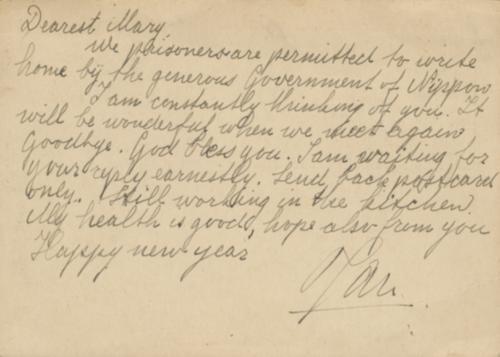 Dearest Mary.
We prisoners are permitted to write
home by the generous Government of Nippow
I am constantly thinking of you. It
will be wonderful when we meet again
Goodbye. God bless you. I am waiting for
your reply earnestly. Send back postcard
only. Still working in the kitchen.
My health is good, hope also from you
Happy new year